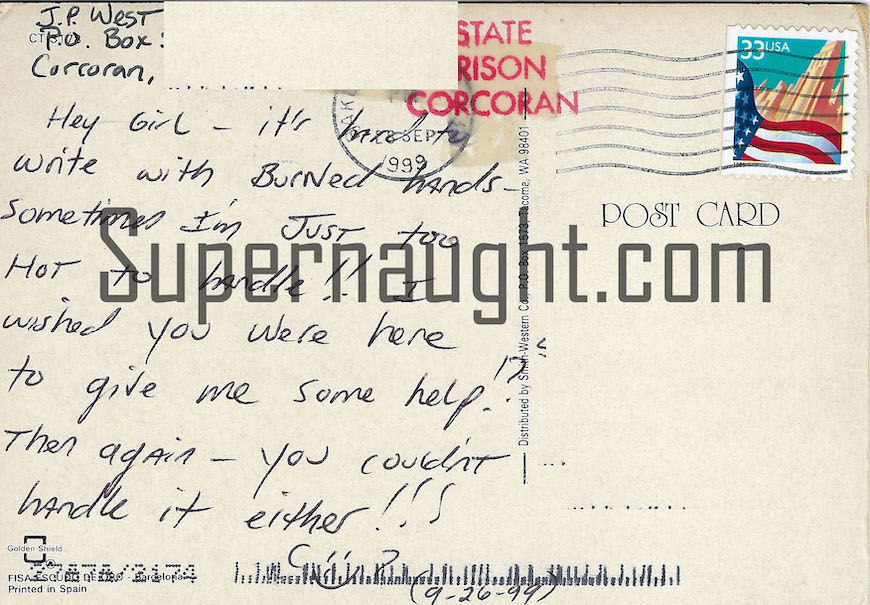 J.P. West
P.O. Box:
Corcoran,
STATE
RISON
CORCORAN
SEP
1999
33USA
POST CARD
Hey Girl - it's hard to
write with Burned hands-
Sometimes I'm Just too
Hot to handle!! I
wished you were here
to give me some help!!
Then again - you couldn't
handle it either!!!
(9-26-99)
Supernaught.com
Distributed by Smith-Western Co., P.O. Box 1573, Tacoma, WA 98401
Golden Shield
FISA ESCUDO DE ORO - Barcelona
Printed in Spain